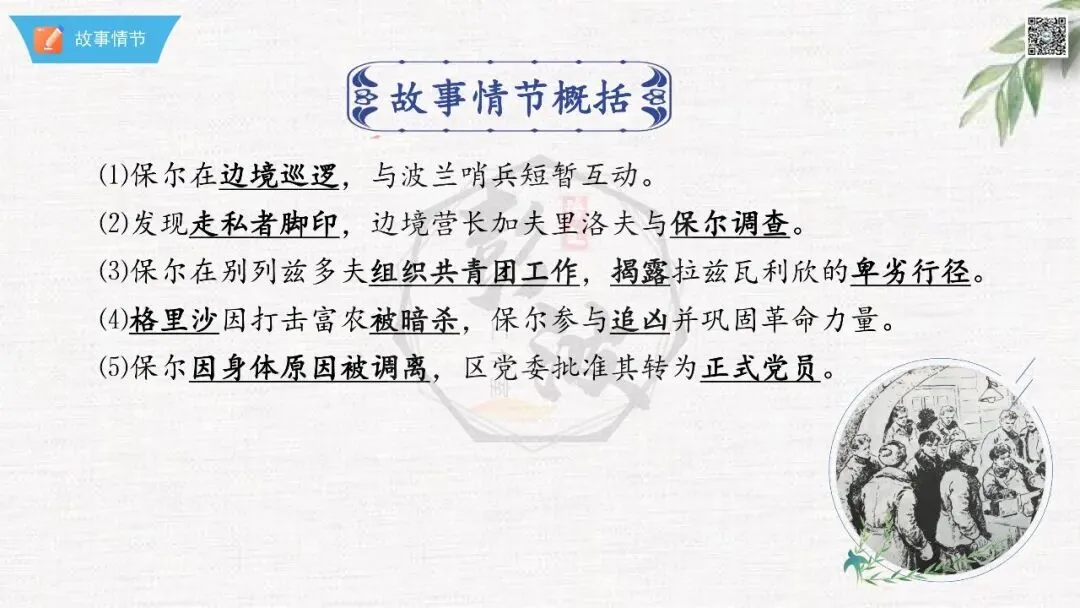 故事情节
故事情节概括
(1)保尔在边境巡逻，与波兰哨兵短暂互动。
(2)发现走私者脚印，边境营长加夫里洛夫与保尔调查。
(3)保尔在别列兹多夫组织共青团工作，揭露拉兹瓦利欣的卑劣行径。
(4)格里沙因打击富农被暗杀，保尔参与追凶并巩固革命力量。
(5)保尔因身体原因被调离，区党委批准其转为正式党员。